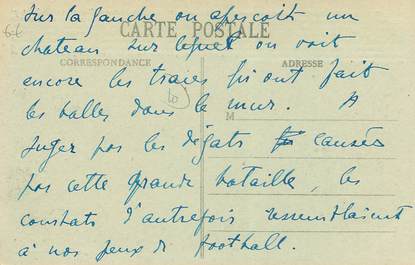 Sur la gauche on aperçoit un
CARTE POSTALE
chateau sur lequel on voit
CORRESPONDANCE
ADRESSE
encore les traces qu'ont fait
les balles dans le mur. A
M
juger par les dégats causés
par cette grande bataille, les
combats d'autrefois ressemblaient
à nos jeux de football.